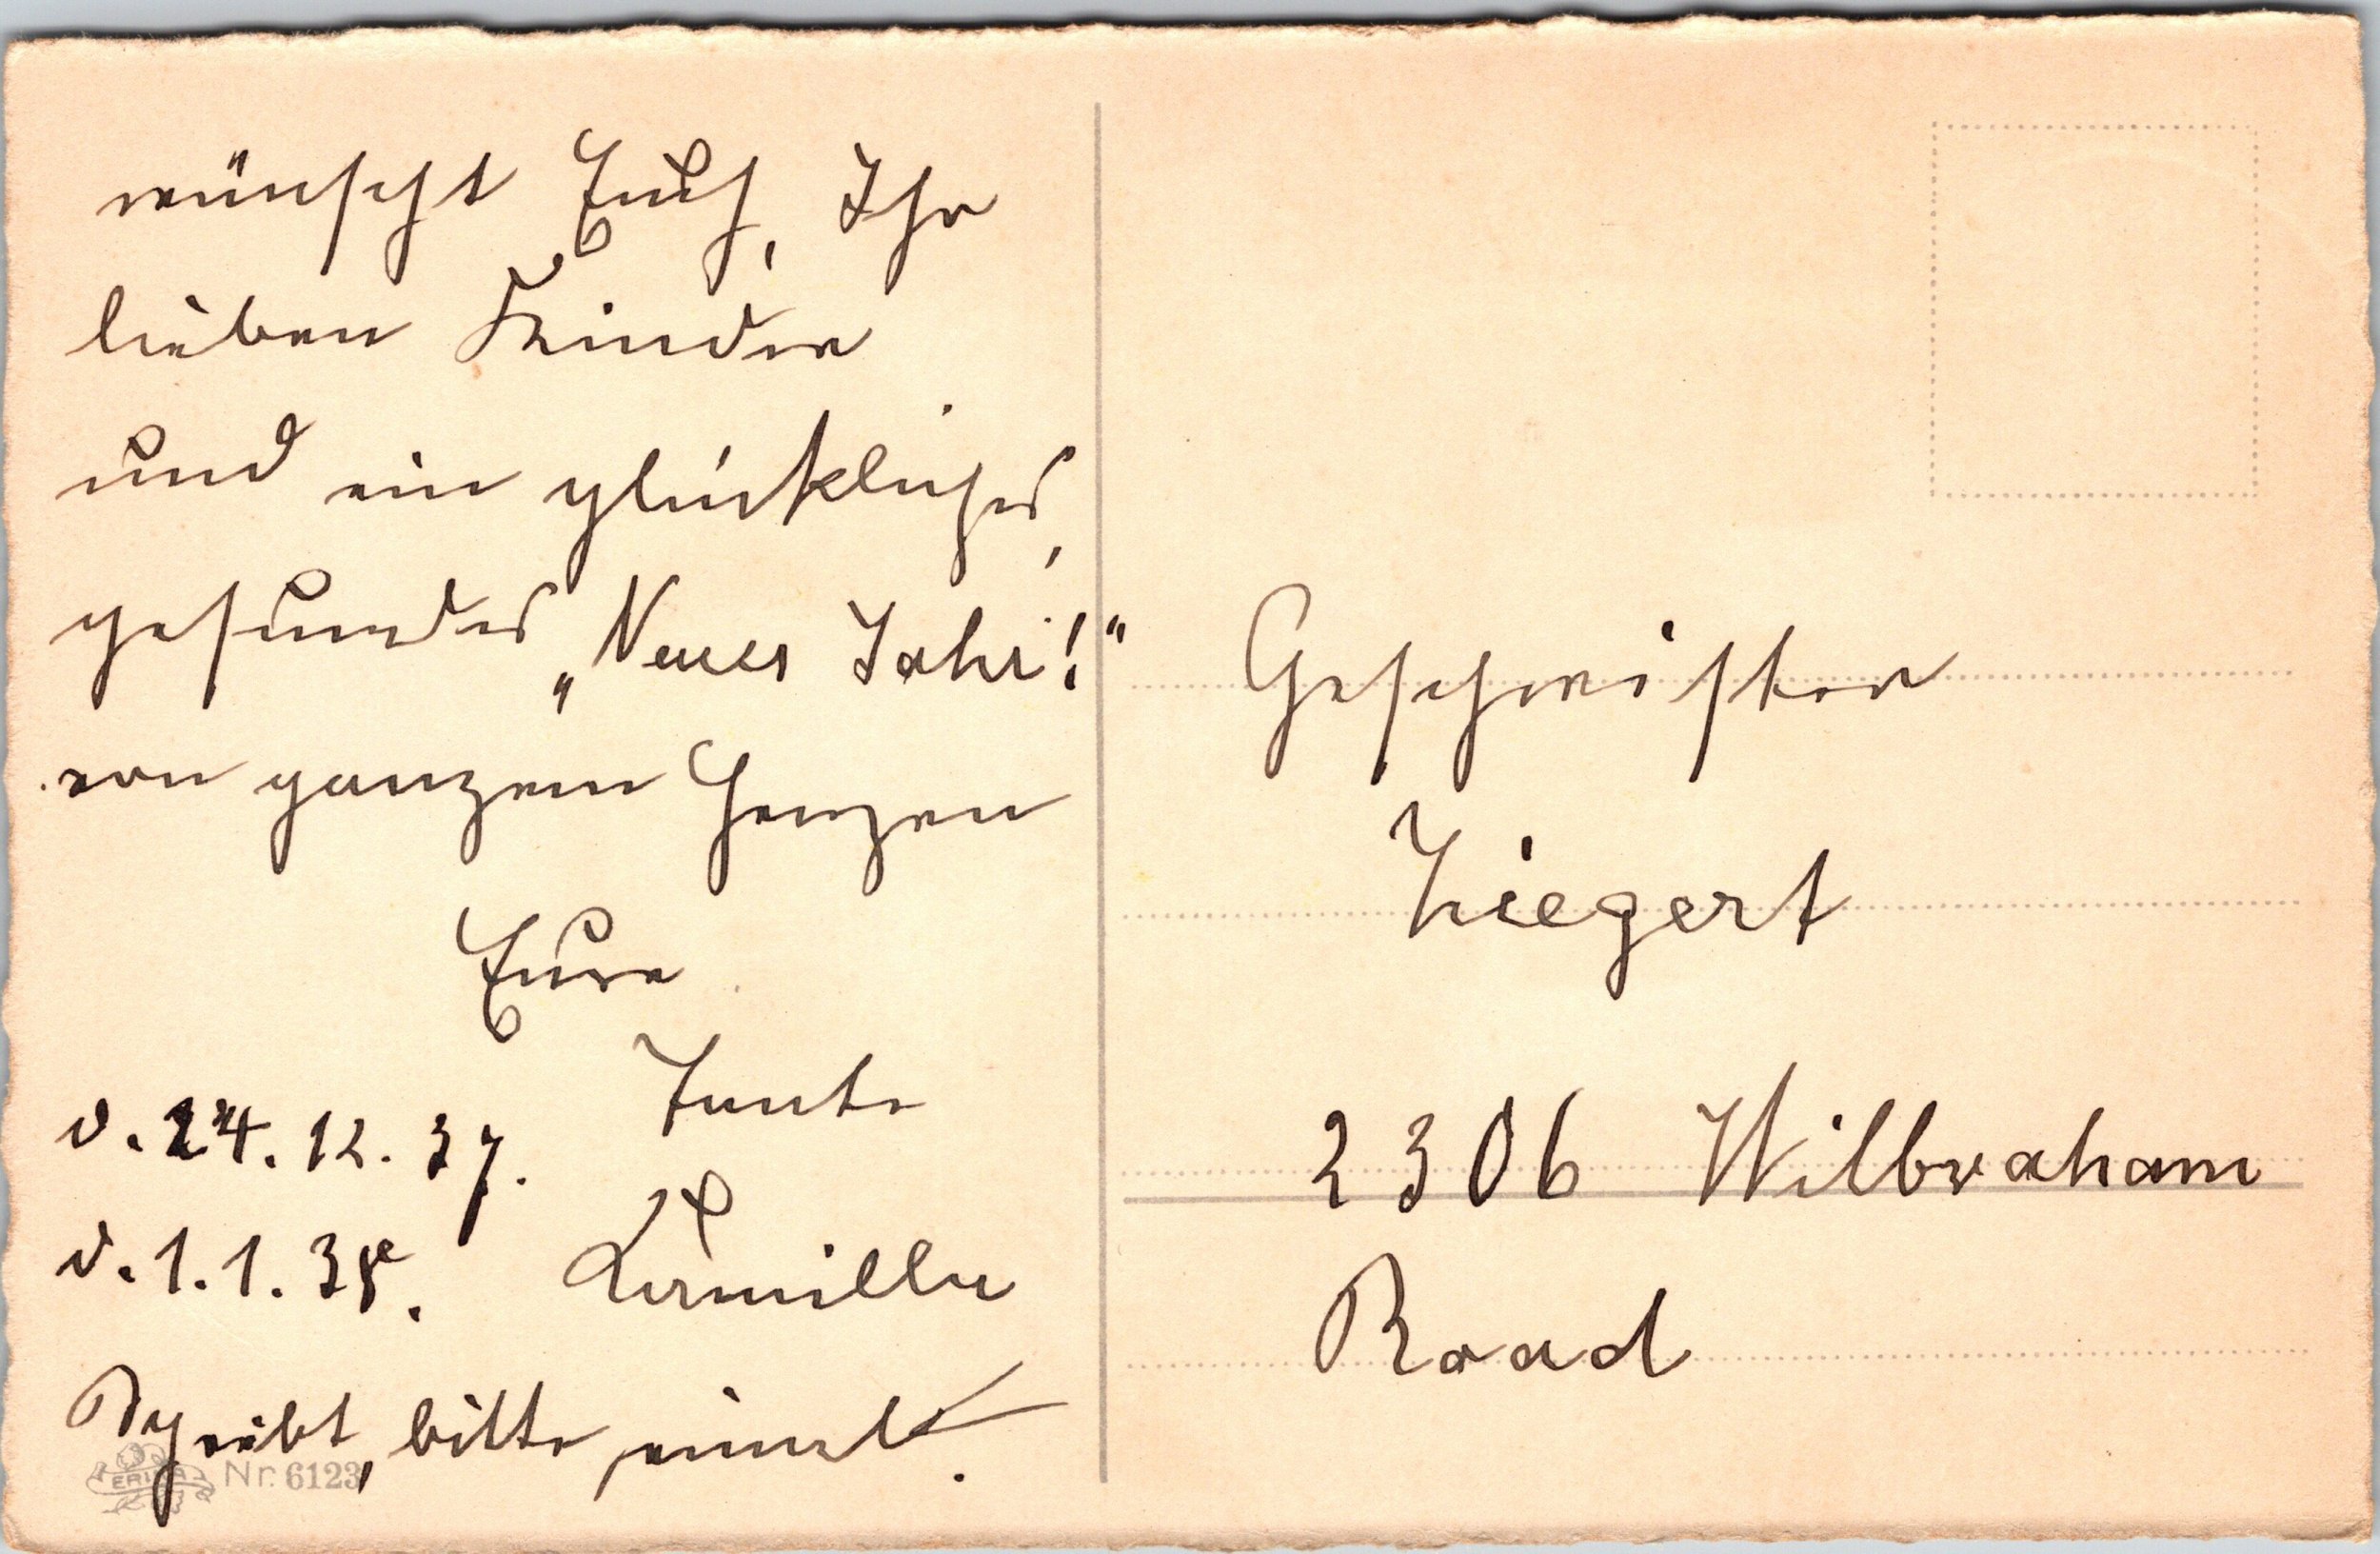 wünscht Euch, Ihr
lieben Kinder
und ein glückliches,
gesundes „Neues Jahr!"
von ganzem Herzen
Eure
Tante
d. 24. 12. 37.
d. 1. 1. 38.
Schreibt, bitte, einmal.
ERIKA Nr. 6123
Geschwister
Ziegert
2306 Wilbraham
Road